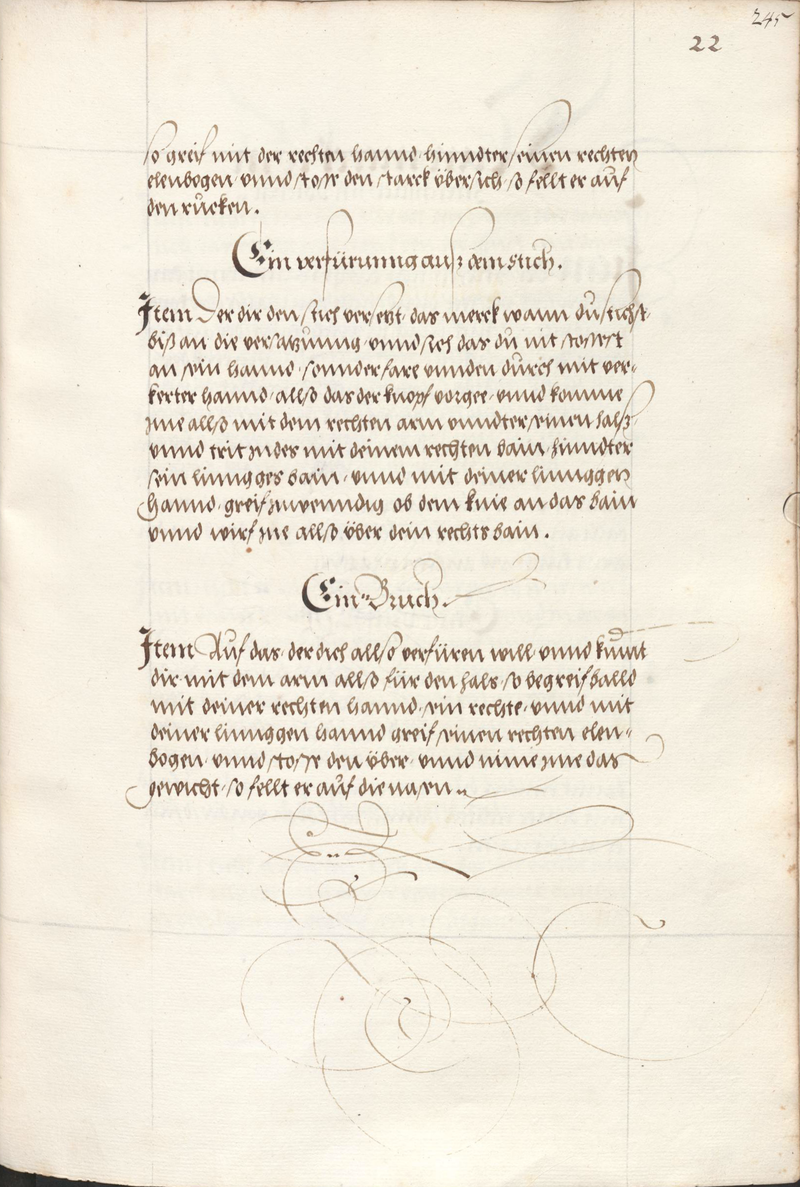 245
22
so greif mit der rechten hannd hinndter seinen rechten
elenbogen vnnd stoss den starck übersich so fellt er auf
den rucken.
Ein verfürunng auß dem stich.
Item Der dir den stich versetzt das merck wann du stichst
biß an die versatzunng vnnd sich das du nit stosst
an sein hannd sonnder fare vnnden durch mit ver-
kerter hannd allso das der knopf vorgee vnnd komme
jme allso mit dem rechten arm vnndter seinen halß
vnnd trit jndes mit deinem rechten bain hinndter
sein linngges bain vnnd mit deiner linnggen
hannd greif jnwenndig ob dem knie an das bain
vnnd wirf jne allso über dein rechts bain.
Ein Bruch.
Item Auf das der dich allso verfüren will vnnd kumt
dir mit dem arm allso für den hals so begreif balld
mit deiner rechten hannd sein rechte vnnd mit
deiner linnggen hannd greif seinen rechten elen-
bogen vnnd stosse den über vnnd nime jme das
gewicht so fellt er auf die nasen